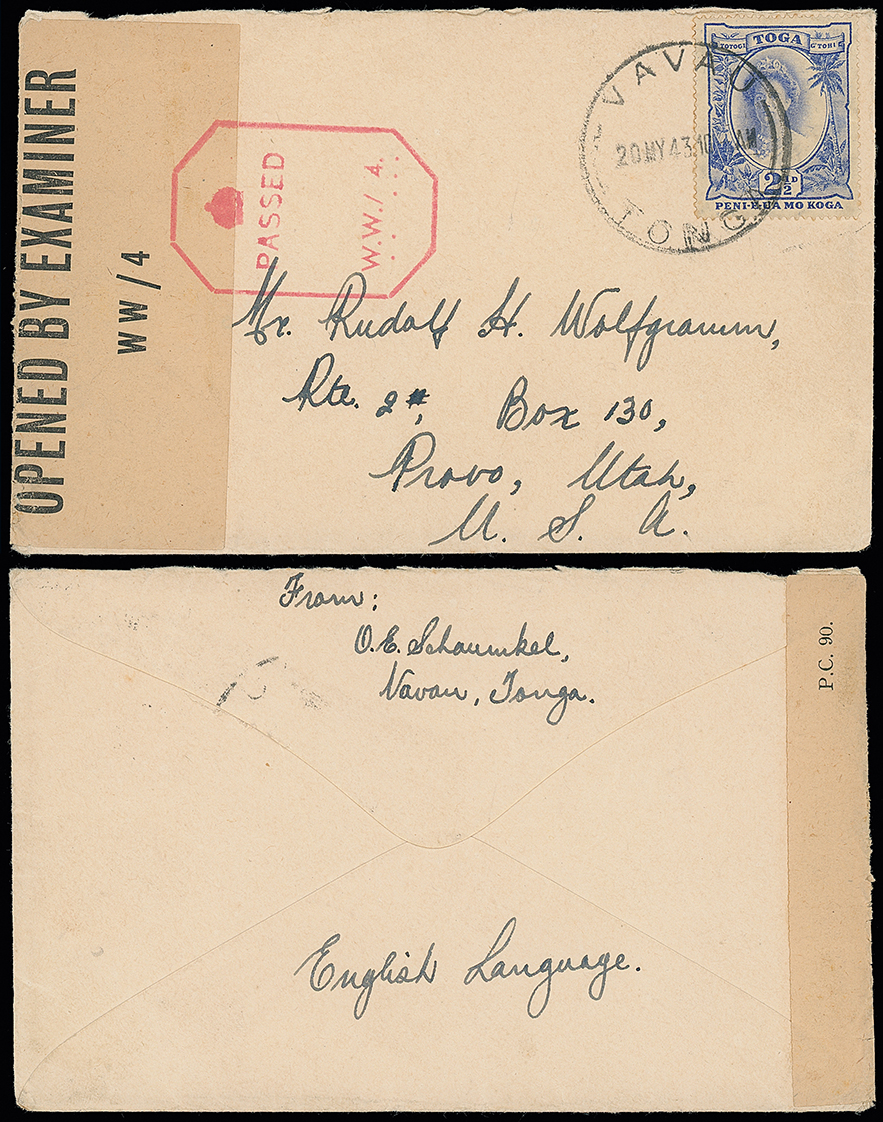 OPENED BY EXAMINER
WW/4
PASSED
W.W./4.
VAVAU
20MY43 10 AM
TONGA
TOTOGI TOGA G TOHI
2½D
PENI-E-UA MO KOGA
Mr. Rudolf H. Wolfgramm,
Rte. 2#, Box 130,
Provo, Utah,
U. S. A.
From:
O.E. Schaumkel,
Vavau, Tonga.
P.C. 90.
English Language.